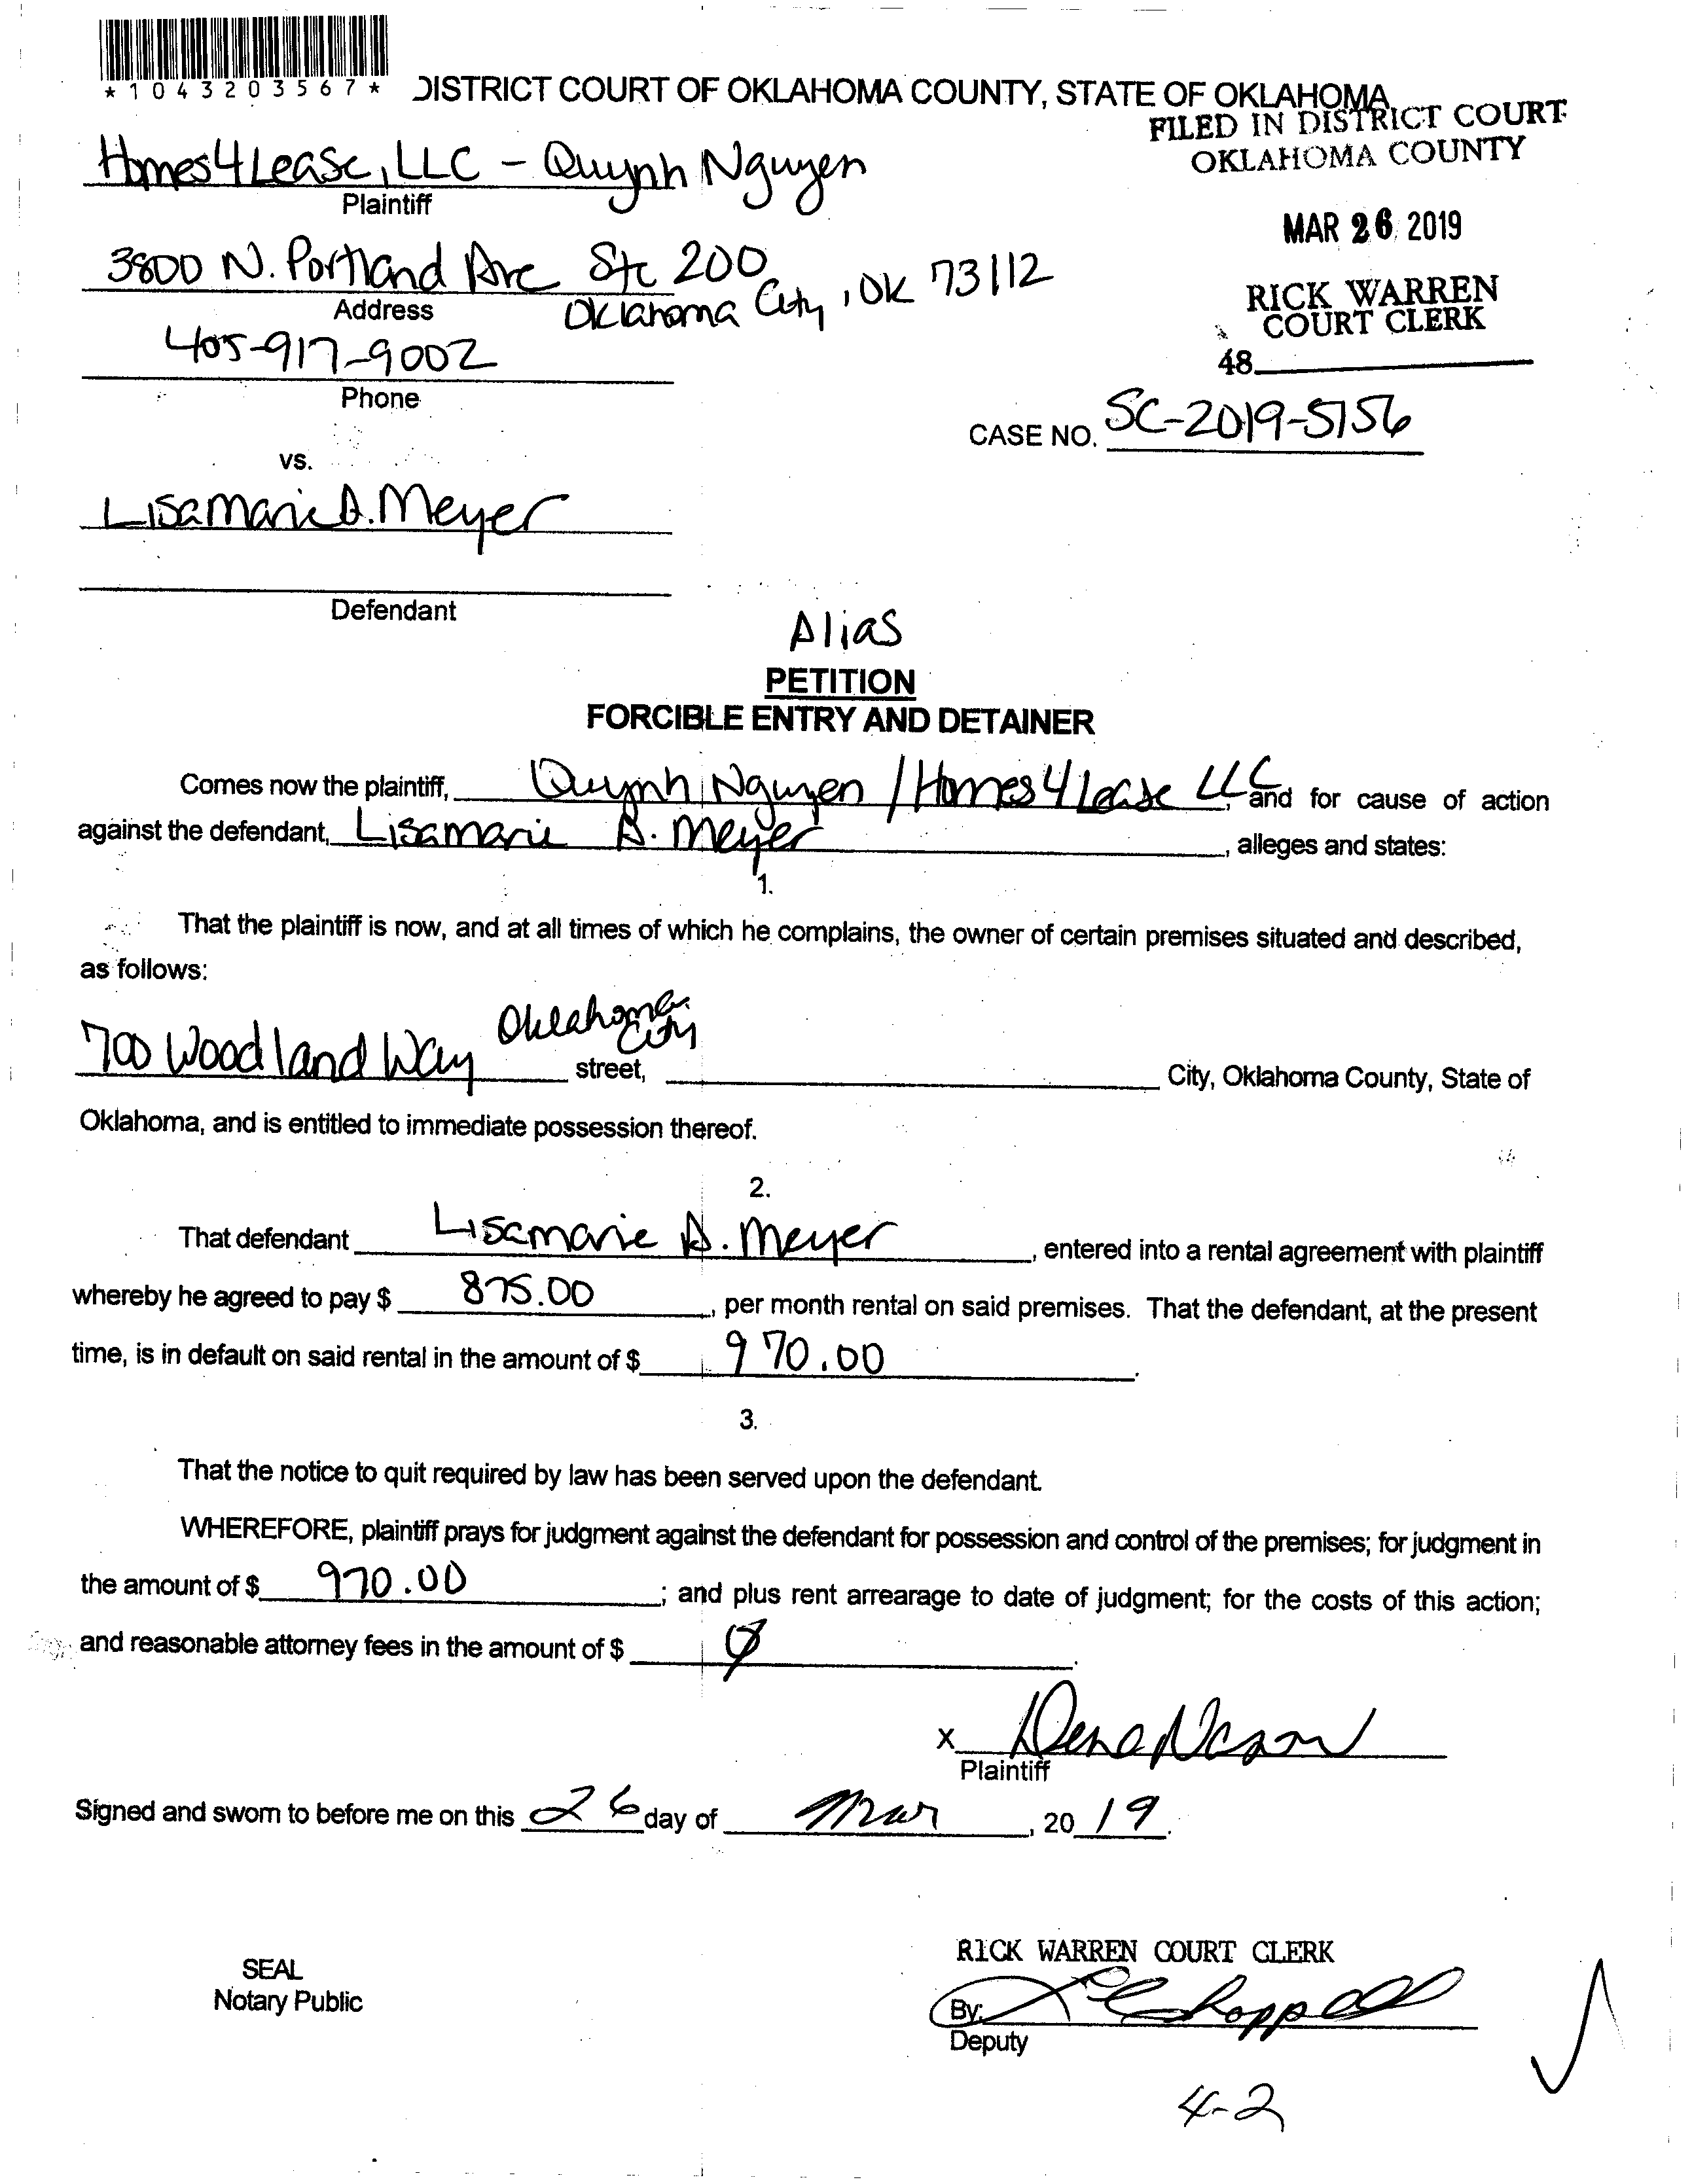 *1043203567*
DISTRICT COURT OF OKLAHOMA COUNTY, STATE OF OKLAHOMA
FILED IN DISTRICT COURT
OKLAHOMA COUNTY
Homes4Lease, LLC - Quynh Nguyen
Plaintiff
MAR 26 2019
3800 N. Portland Ave Ste 200
Oklahoma City, OK 73112
Address
RICK WARREN
COURT CLERK
48
405-917-9002
Phone
CASE NO. SC-2019-5156
vs.
Lisamarie A. Meyer
Defendant
Alias
PETITION
FORCIBLE ENTRY AND DETAINER
Comes now the plaintiff, Quynh Nguyen / Homes 4 Lease LLC, and for cause of action
against the defendant, Lisamarie A. Meyer, alleges and states:
1.
That the plaintiff is now, and at all times of which he complains, the owner of certain premises situated and described,
as follows:
700 Woodland Way street, Oklahoma City City, Oklahoma County, State of
Oklahoma, and is entitled to immediate possession thereof.
2.
That defendant Lisamarie A. Meyer, entered into a rental agreement with plaintiff
whereby he agreed to pay $ 875.00, per month rental on said premises. That the defendant, at the present
time, is in default on said rental in the amount of $ 970.00.
3.
That the notice to quit required by law has been served upon the defendant.
WHEREFORE, plaintiff prays for judgment against the defendant for possession and control of the premises; for judgment in
the amount of $ 970.00; and plus rent arrearage to date of judgment; for the costs of this action;
and reasonable attorney fees in the amount of $ Ø.
x
Plaintiff
Signed and sworn to before me on this 26 day of Mar, 20 19.
RICK WARREN COURT CLERK
SEAL
Notary Public
By:
Deputy
4-2